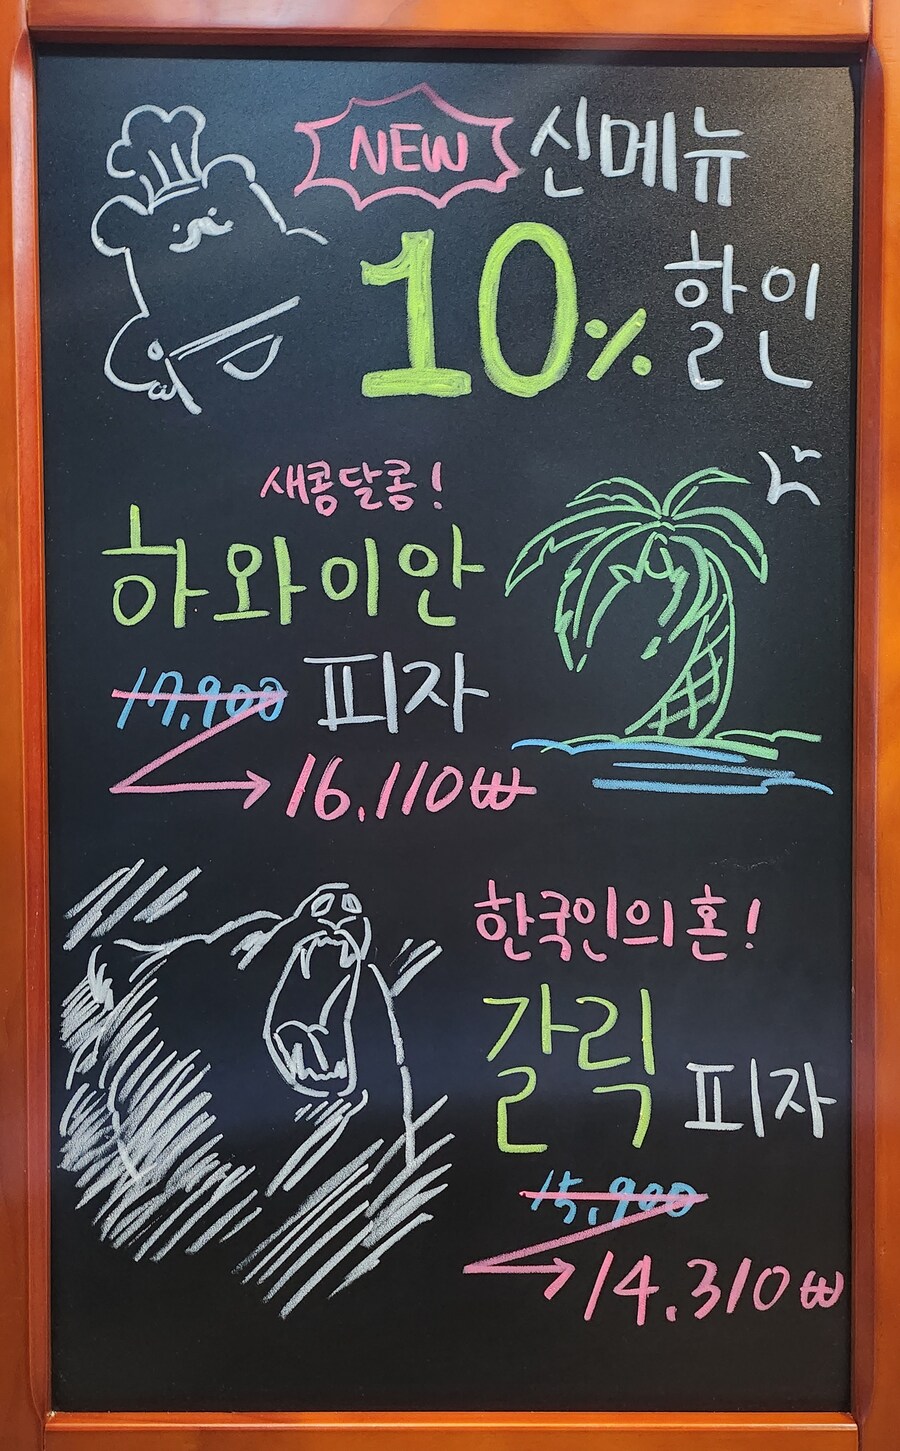 NEW 신메뉴
10% 할인
새콤달콤!
하와이안
17,900 피자
16.110₩
한국인의 혼!
갈릭 피자
15,900
14.310₩